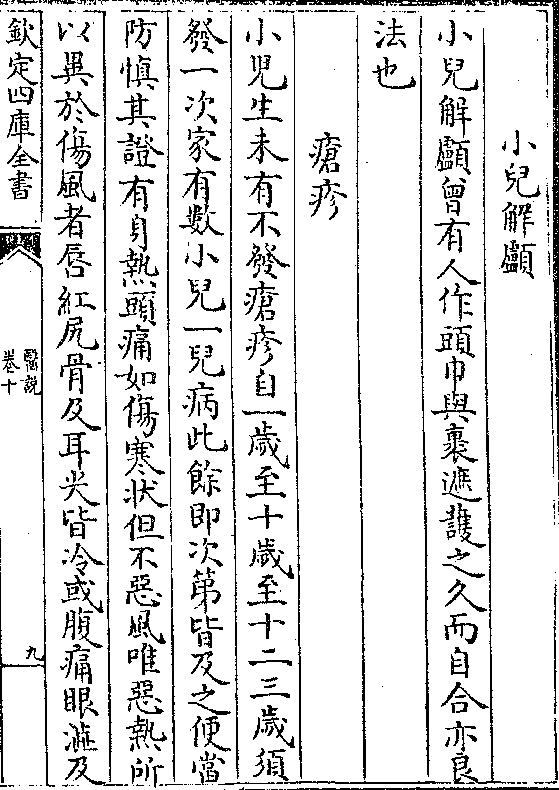 小兒解顱
小兒解顱曾有人作頭巾與裹遮護之久而自合亦良
法也
瘡疹
小兒生未有不發瘡疹自一歲至十歲至十二三歲須
發一次家有數小兒一兒病此餘即次第皆及之便當
防慎其證有身熱頭痛如傷寒狀但不惡風唯惡熱所
以異於傷風者唇紅尻骨及耳尖皆冷或腹痛眼澁及
欽定四庫全書
醫說
卷十
九